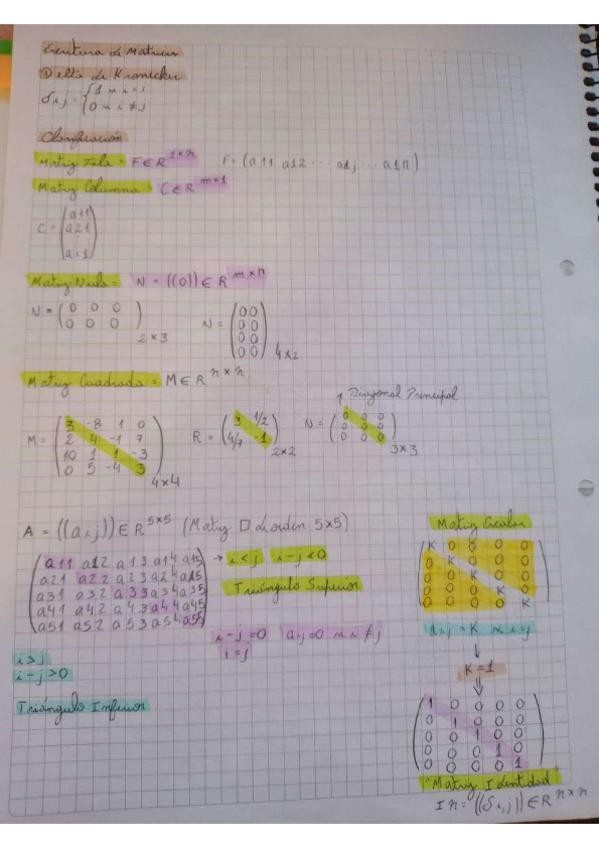 Escritura de Matrices
① Delta de Kronecker
δi,j = {1 si i=j
0 si i≠j
Clasificación
Matriz Fila = F∈R^1×n F = (a11 a12 ... a1j ... a1n)
Matriz Columna = C∈R^m×1
C = (a11
a21
⋮
a=1)
Matriz Nula = N = ((0)) ∈ R^m×n
N = (0 0 0
0 0 0) 2×3
N = (0 0
0 0
0 0
0 0) 4×2
Matriz Cuadrada = M∈R^n×n
↑ Diagonal Principal
M = (3 -8 1 0
2 4 -1 7
10 1 1 -3
0 5 -4 3) 4×4
R = (3 1/2
4/7 -1) 2×2
N = (0 0 0
0 0 0
0 0 0) 3×3
A = ((ai,j)) ∈ R^5×5 (Matriz □ de orden 5×5)
(a11 a12 a13 a14 a15
a21 a22 a23 a24 a25
a31 a32 a33 a34 a35
a41 a42 a43 a44 a45
a51 a52 a53 a54 a55)
→ i<j i-j<0
Triángulo Superior
i-j=0 ai,j=0 si i≠j
i=j
i>j
i-j>0
Triángulo Inferior
Matriz Escalar
(K 0 0 0 0
0 K 0 0 0
0 0 K 0 0
0 0 0 K 0
0 0 0 0 K)
ai,j = K si i=j
↓
K=1
⇓
(1 0 0 0 0
0 1 0 0 0
0 0 1 0 0
0 0 0 1 0
0 0 0 0 1)
"Matriz Identidad"
In = ((δi,j)) ∈ R^n×n